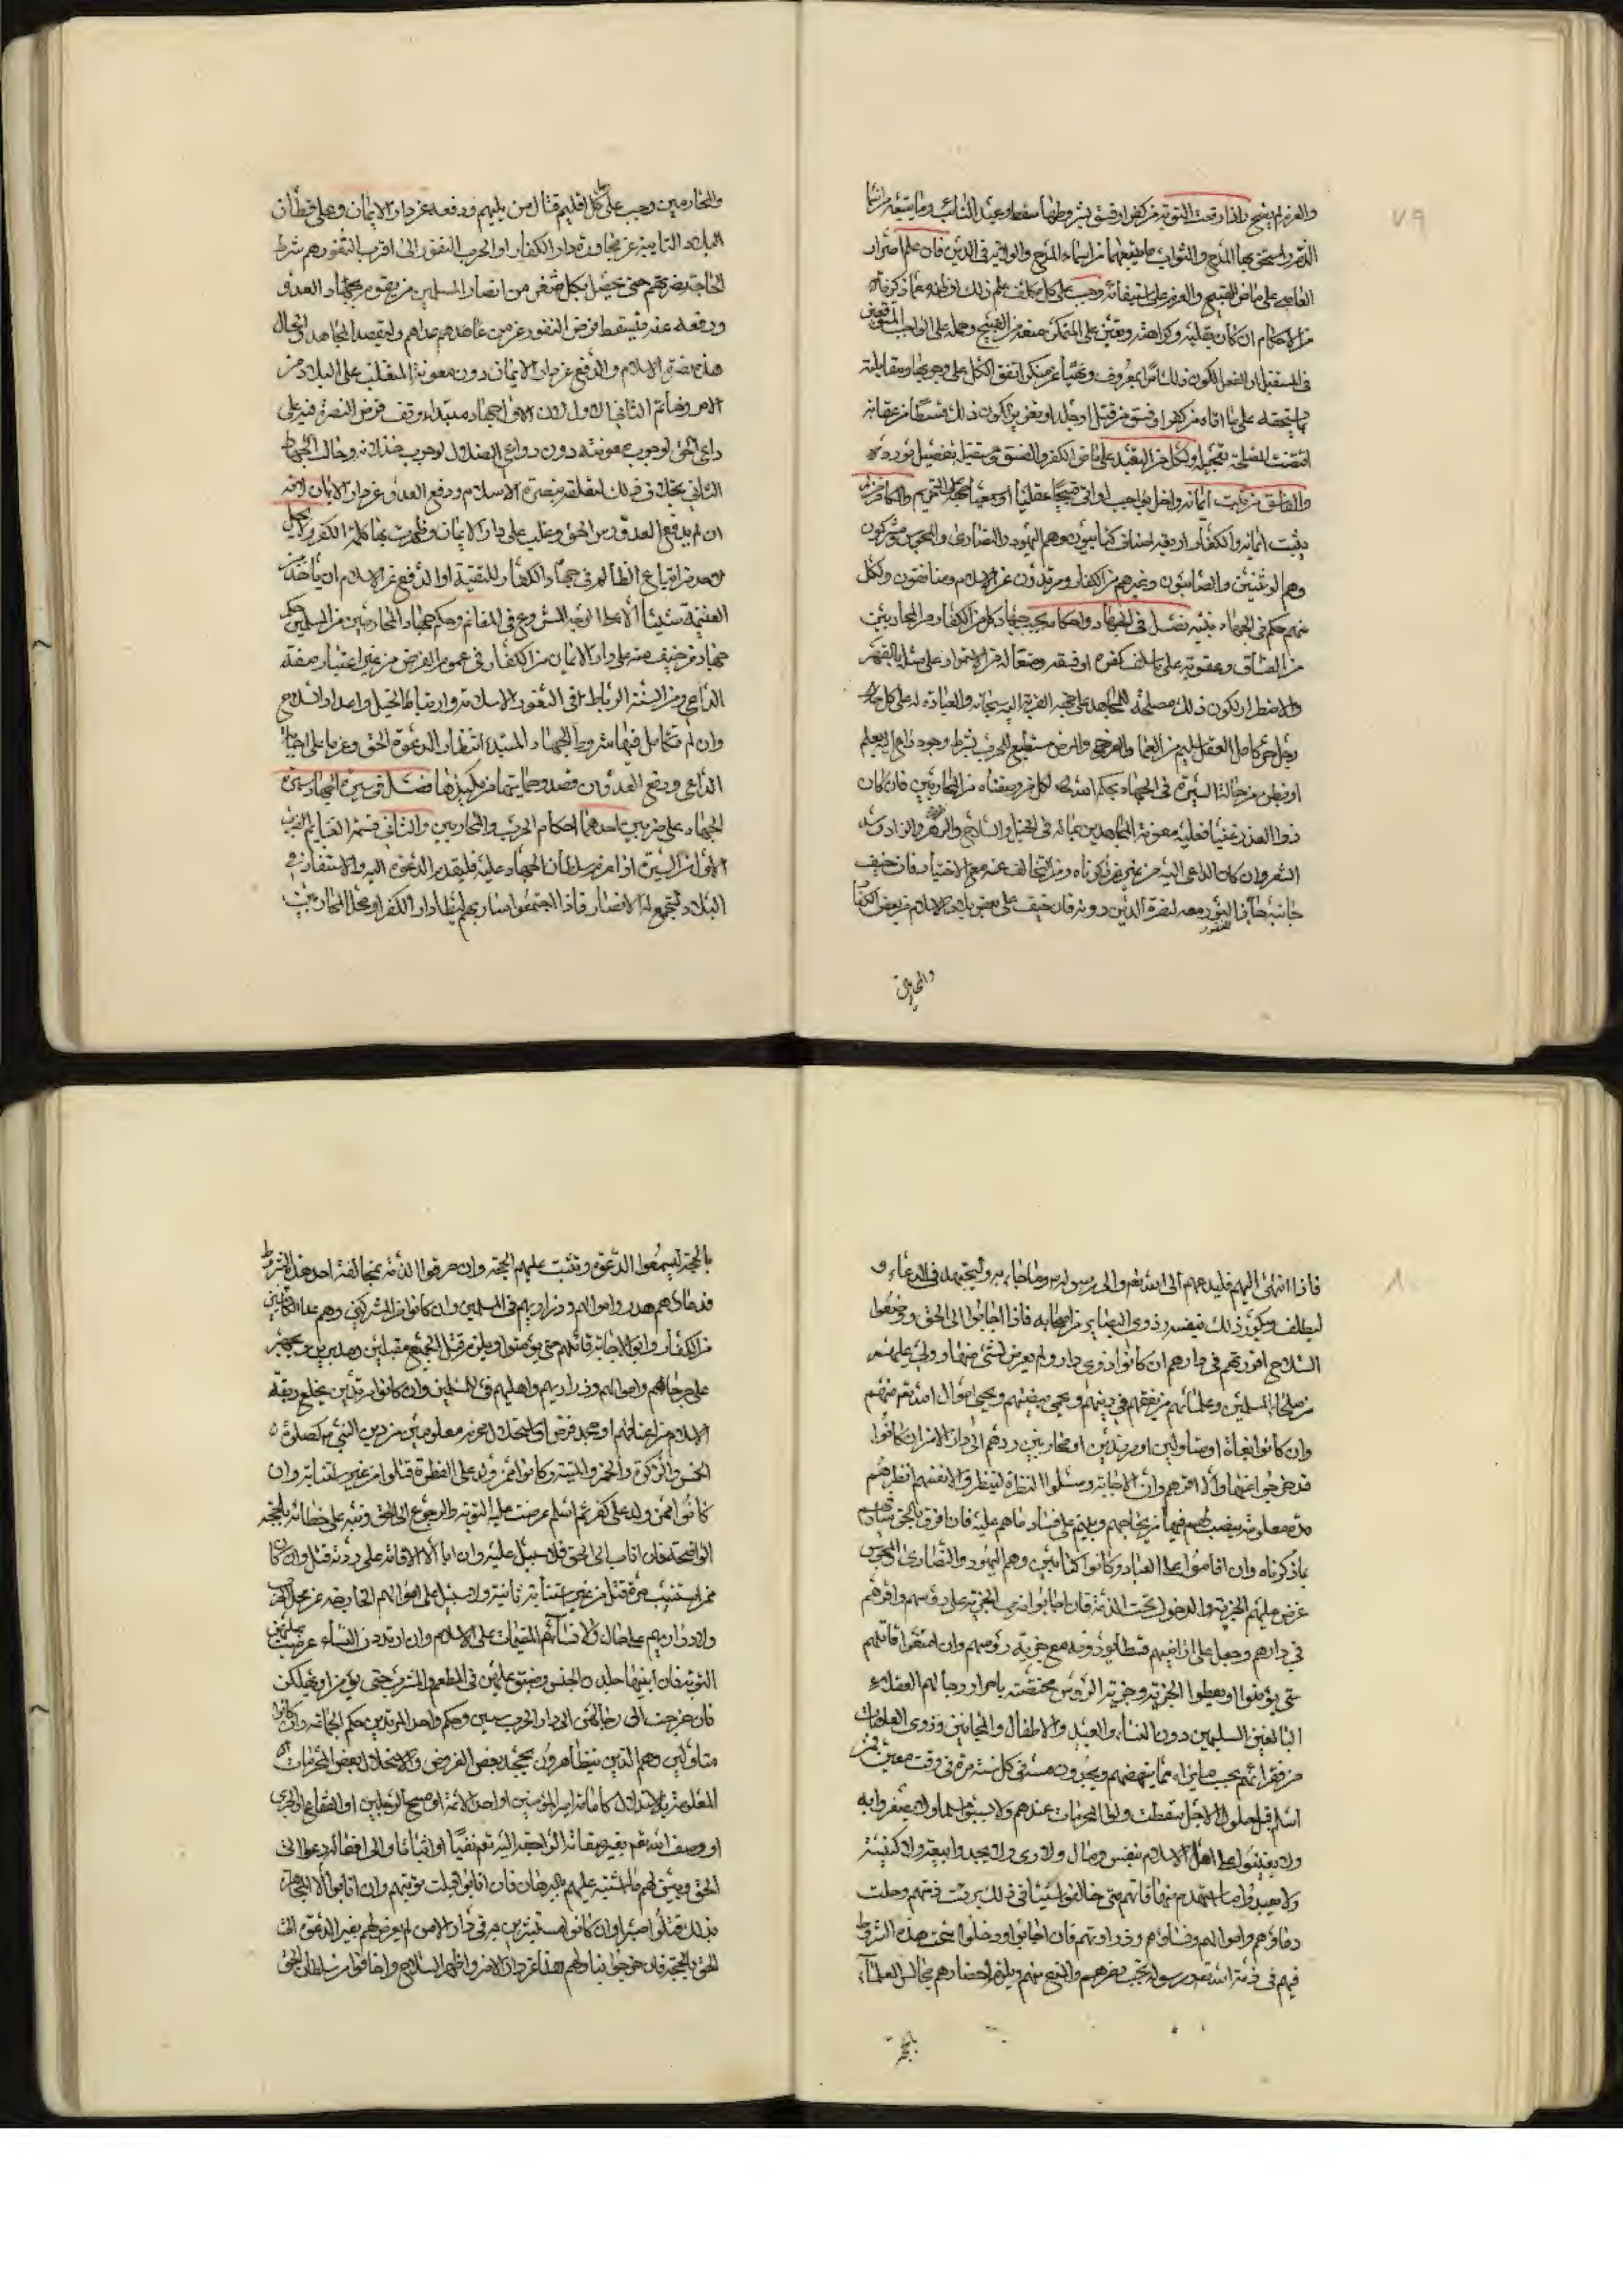 ٧٩
والعزم لم يصح واذا وقعت التوبة من كفر او فسق بشروطها سقط وعيد التائب وما يتبعه من اسماء
الذم واستحق بها المدح والثواب وما يتبعهما من اسماء المدح والولاية في الدين فان علم اصرار
العاصي على ماضى القبيح والعزم على استيفائه وجب على كل مكلف علم ذلك او ظنه معما ذكرناه
من الاحكام ان كان قطيه وكراهته وتعين على المتمكن منعه من القبيح وحمله على الواجب
في المستقبل ليكون ذلك امرا بمعروف ونهيا عن منكر اتفق الكل على وجوبهما ومقابلته
بما يستحقه على ما اتاه من كفر او فسق من قتل او جلد او تعزير ليكون ذلك قسطا من عقابه
اقتضت المصلحة تعجيله ولكل من التعبد على ماضى الكفر والفسق ومستقبله تفصيل نورده
والفاسق من ثبت ايمانه واخل بواجب او اتى قبيحا عقليا او سمعيا والكافر من لم
يثبت ايمانه والكفار اصناف كتابيون وهم اليهود والنصارى والمجوس ومشركون
وهم الوثنيون والصابئون وغيرهم من الكفار ومرتدون عن الاسلام ومنافقون ولكل
منهم حكم في الجهاد نبينه فصل في الجهاد واحكامه يجب جهاد كل من الكفار والمحاربين
من الفساق وعقوبة على ما سلف كفره او فسقه ومنعا له من الاستمرار على مثله بالقهر
والاضطرار ليكون ذلك مصلحة للمجاهد على جهة القربة اليه سبحانه والعبادة له على كل حال
رجل حر كامل العقل سليم من العمى والعرج والمرض مستطيع للحرب بشرط وجود داع اليه يعلم
او يظن من حاله السيرة في الجهاد بحكم الله تعالى لكل من وصفناه من المحاربين فان كان
ذوا العذر غنيا فعليه معونة المجاهدين بماله في الخيل والسلاح والظهر والزاد وسد
الثغر وان كان الداعي اليه من غير من ذكرناه وجب التخالف عنه مع الاختيار فان خيف
جانبه جاز النفور معه لنصرة الدين دونه فان خيف على بعض بلاد الاسلام من بعض الكفار
والمحاربين
والمحاربين وجب على كل اقليم قتال من يليهم ودفعهم عن دار الايمان وعلى قطان
البلاد النائية عن مجاورة دار الكفر او الحرب النفور الى اقرب الثغور بشرط
الحاجة الى نصرتهم حتى يحصل بكل ثغر من انصار المسلمين من يقوم بجهاد العدو
ودفعه عنه فيسقط فرض النفور عن من عداهم وليقصد المجاهد والحال
هذه نصرة الاسلام والدفع عن دار الايمان دون معونة المتغلب على البلاد من
الامراء وخالف الثاني الاول لان الاول جهاد مبتداء وقف فرض النصرة فيه على
داعي الحق لوجوب معونته دون داعي الضلال لوجوب خذلانه وحال الجهاد
الثاني بخلاف ذلك لتعلقه بنصرة الاسلام ودفع العدو عن دار الايمان لانه
ان لم يدفع العدو درس الحق وغلب على دار الايمان وظهرت بها كلمة الكفر ولا يحل
لاحد من اتباع الظالم في جهاد الكفار للتقية او الدفع عن الاسلام ان يأخذ من
الغنيمة شيئا الا على الوجه المشروع في المغانم وحكم جهاد المحاربين من المسلمين حكم
جهاد من خيف منه على دار الايمان من الكفار في عموم الفرض من غير اعتبار صفة
الداعي ومن السنة الرباط في الثغور الاسلامية وارتباط الخيل واعداد السلاح
وان لم تتكامل فيها شروط الجهاد المبتدا انتظار الدعوة الحق وعزما على اجابة
الداعي ودفع العدو ان قصد وحمايتها من مكيدها فصل في سيرة الجهاد سيرة
الجهاد على ضربين احدهما احكام الحرب والمحاربين والثاني قسمة الغنايم الضرب
الاول من السيرة اذا عزم سلطان الجهاد عليه فليقدم الدعوة اليه والاستنفار في
البلاد لتجمع له الانصار فاذا اجتمعوا سار بهم ليطأ دار الكفر او محل المحاربين
٨٠
فاذا انتهى اليهم فليدعهم الى الله تعالى والى رسوله وما جاء به وليجتهد في الدعاء و
ليلطف ويكون ذلك بنفسه وذوي البصاير من اصحابه فاذا اجابوا الى الحق ووضعوا
السلاح اقرهم في دارهم ان كانوا ذوي دار ولم يعرض لشئ منها وولى عليهم
من صلحاء المسلمين وعلمائهم من يفقههم في دينهم ويحمي بيضتهم ويجبي اموال الله تعالى منهم
وان كانوا بغاة او متاولين او مرتدين او محاربين ردهم الى دار الامن ان كانوا
قد خرجوا عنها والا اقرهم وان ابوا الاجابة وسئلوا النظرة لينظروا لانفسهم انظرهم
مدة معلومة ينصب لهم فيها من يحاجهم ويبين على فساد ما هم عليه فان اقروا بالحق سار فيهم
بما ذكرناه وان اقاموا على العناد وكانوا كتابيين وهم اليهود والنصارى والمجوس
عرض عليهم الجزية والدخول تحت الذمة فان اجابوا ضرب الجزية على رؤسهم واقرهم
في دارهم وجعل على اراضيهم قسطا يؤدونه مع جزية رؤسهم وان امتنعوا قاتلهم
حتى يؤمنوا او يعطوا الجزية وجزية الرؤس مختصة باحرار رجالهم العقلاء
البالغين السليمين دون النساء والعبيد والاطفال والمجانين وذوي العاهات
من فقرائهم بحسب ما يراه مما ينهضهم ويجبون منه في كل سنة مرة في وقت معين فمن
اسلم قبل حلول الاجل سقطت ولا يسبوا مسلما ولا يصغروا به
ولا يعينوا على اهل الاسلام بنفس ومال ولا رى ولا يجددوا بيعة ولا كنيسة
ولا يعيدوا ما استهدم منها فانهم متى خالفوا شيئا في ذلك برئت ذمتهم وحلت
دماؤهم واموالهم ونساؤهم وذراريهم فان اجابوا ودخلوا تحت هذه الشروط
فهم في ذمة الله تعالى ورسوله يجب نصرهم والمنع منهم ويلزم احضارهم مجالس العلماء
بالحجة
بالحجة ليسمعوا الدعوة وتثبت عليهم الحجة وان خرقوا الذمة بمخالفة احد هذه الشروط
فدماؤهم هدر واموالهم وذراريهم في المسلمين وان كانوا من المشركين وهم عدا الكتابيين
من الكفار وابوا الاجابة قاتلهم حتى يؤمنوا ويلزم قتل الجميع مقبلين ومدبرين ويجهز
على جرحاهم واموالهم وذراريهم واهليهم في المسلمين وان كانوا مرتدين بخلع ربقة
الاسلام من اعناقهم او جحد فرض او استحلال محرم معلومين من دين النبي ص كصلوة
الخمس والزكوة والخمر والميتة وكانوا ممن ولد على الفطرة قتلوا من غير استتابة وان
كانوا ممن ولد على كفر ثم اسلم عرضت عليه التوبة والرجوع الى الحق ونبه على خطائه بالحجة
الواضحة فان اناب الى الحق فلا سبيل عليه وان ابى الا الاقامة على ردته قتل وان كانوا
ممن استتيب مرة قتل من غير استتابة ثانية ولا سبيل على اموالهم الخارجة عن محل الحرب
ولا ذراريهم على حال ولا نسائهم المقيمات على الاسلام وان ارتددن النساء عرضت عليهن
التوبة فان ابينها خلدن الحبس وضيق عليهن في المطعم والمشرب حتى يؤمن او يهلكن
فان خرجت الى رجالهن الى دار الحرب سبين وحكم واحد المرتدين حكم الجماعة وان كانوا
متاولين وهم الذين يتظاهرون بجحد بعض الفروض والاستحلال لبعض المحرمات
المعلومة بالاستدلال كامامة امير المؤمنين او احد الائمة او مسح الرجلين او الفقاع والجري
او وصف الله تعالى بغير صفاته الراجعة اليه تعالى نفيا او اثباتا والى افعاله دعوا الى
الحق وبين لهم ما اشتبه عليهم بالبرهان فان انابوا قبلت توبتهم وان ابوا الا
بذلك قتلوا صبرا وان كانوا مستترين به في دار الامن لم يعرض لهم بغير الدعوة الى
الحق بالحجة فان خرجوا بتأولهم هذا عن دار الامن واظهروا السلاح واخافوا سلطان الحق